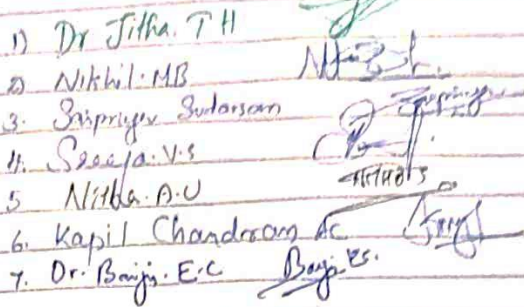 1) Dr Jitha. T H
2) Nikhil. MB
3. Saipriya Sudarsan
4. Sreeja. V.S
5 Nitha. A.U
6. Kapil Chandran AC
7. Dr. Baiju. E.C Baiju EC.